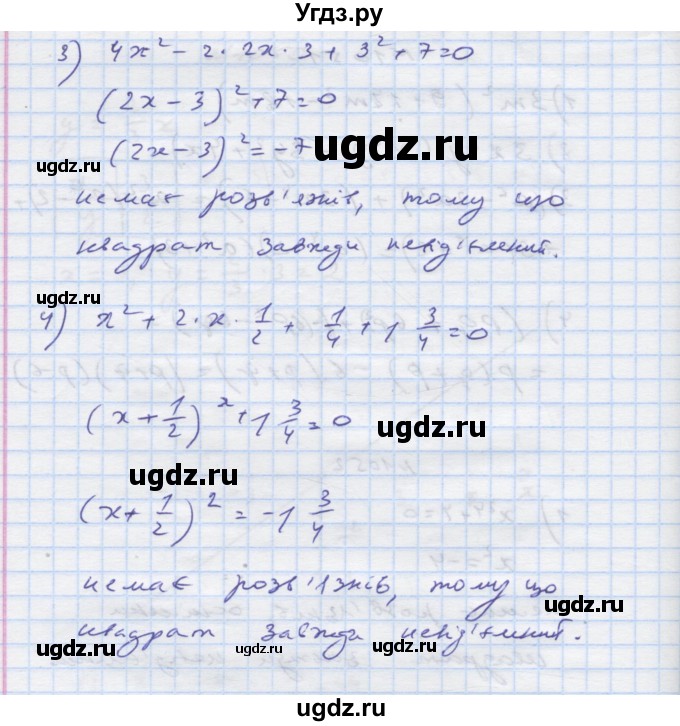 Угдз.ру
3) 4x² - 2·2x·3 + 3² + 7 = 0
(2x - 3)² + 7 = 0
(2x - 3)² = -7
ugdz.ru
ugdz.ru
ugdz.ru
немає розв'язків, тому що
квадрат завжди невід'ємний.
ugdz.ru
ugdz.ru
4) x² + 2·x·1/2 + 1/4 + 1 3/4 = 0
(x + 1/2)² + 1 3/4 = 0
ugdz.ru
ugdz.ru
(x + 1/2)² = -1 3/4
немає розв'язків, тому що
ugdz.ru
квадрат завжди невід'ємний.
ugdz.ru
ugdz.ru
ugdz.ru
ugdz.ru